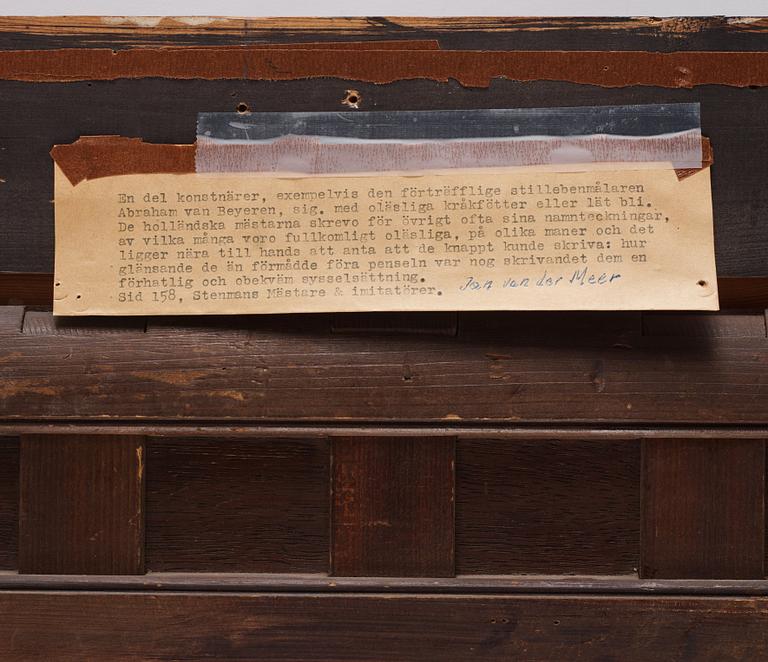 En del konstnärer, exempelvis den förträfflige stillebenmålaren
Abraham van Beyeren, sig. med oläsliga kråkfötter eller lät bli.
De holländska mästarna skrevo för övrigt ofta sina namnteckningar,
av vilka många voro fullkomligt oläsliga, på olika maner och det
ligger nära till hands att anta att de knappt kunde skriva: hur
glänsande de än förmådde föra penseln var nog skrivandet dem en
förhatlig och obekväm sysselsättning.
Sid 158, Stenmans Mästare & imitatörer. Jan van der Meer